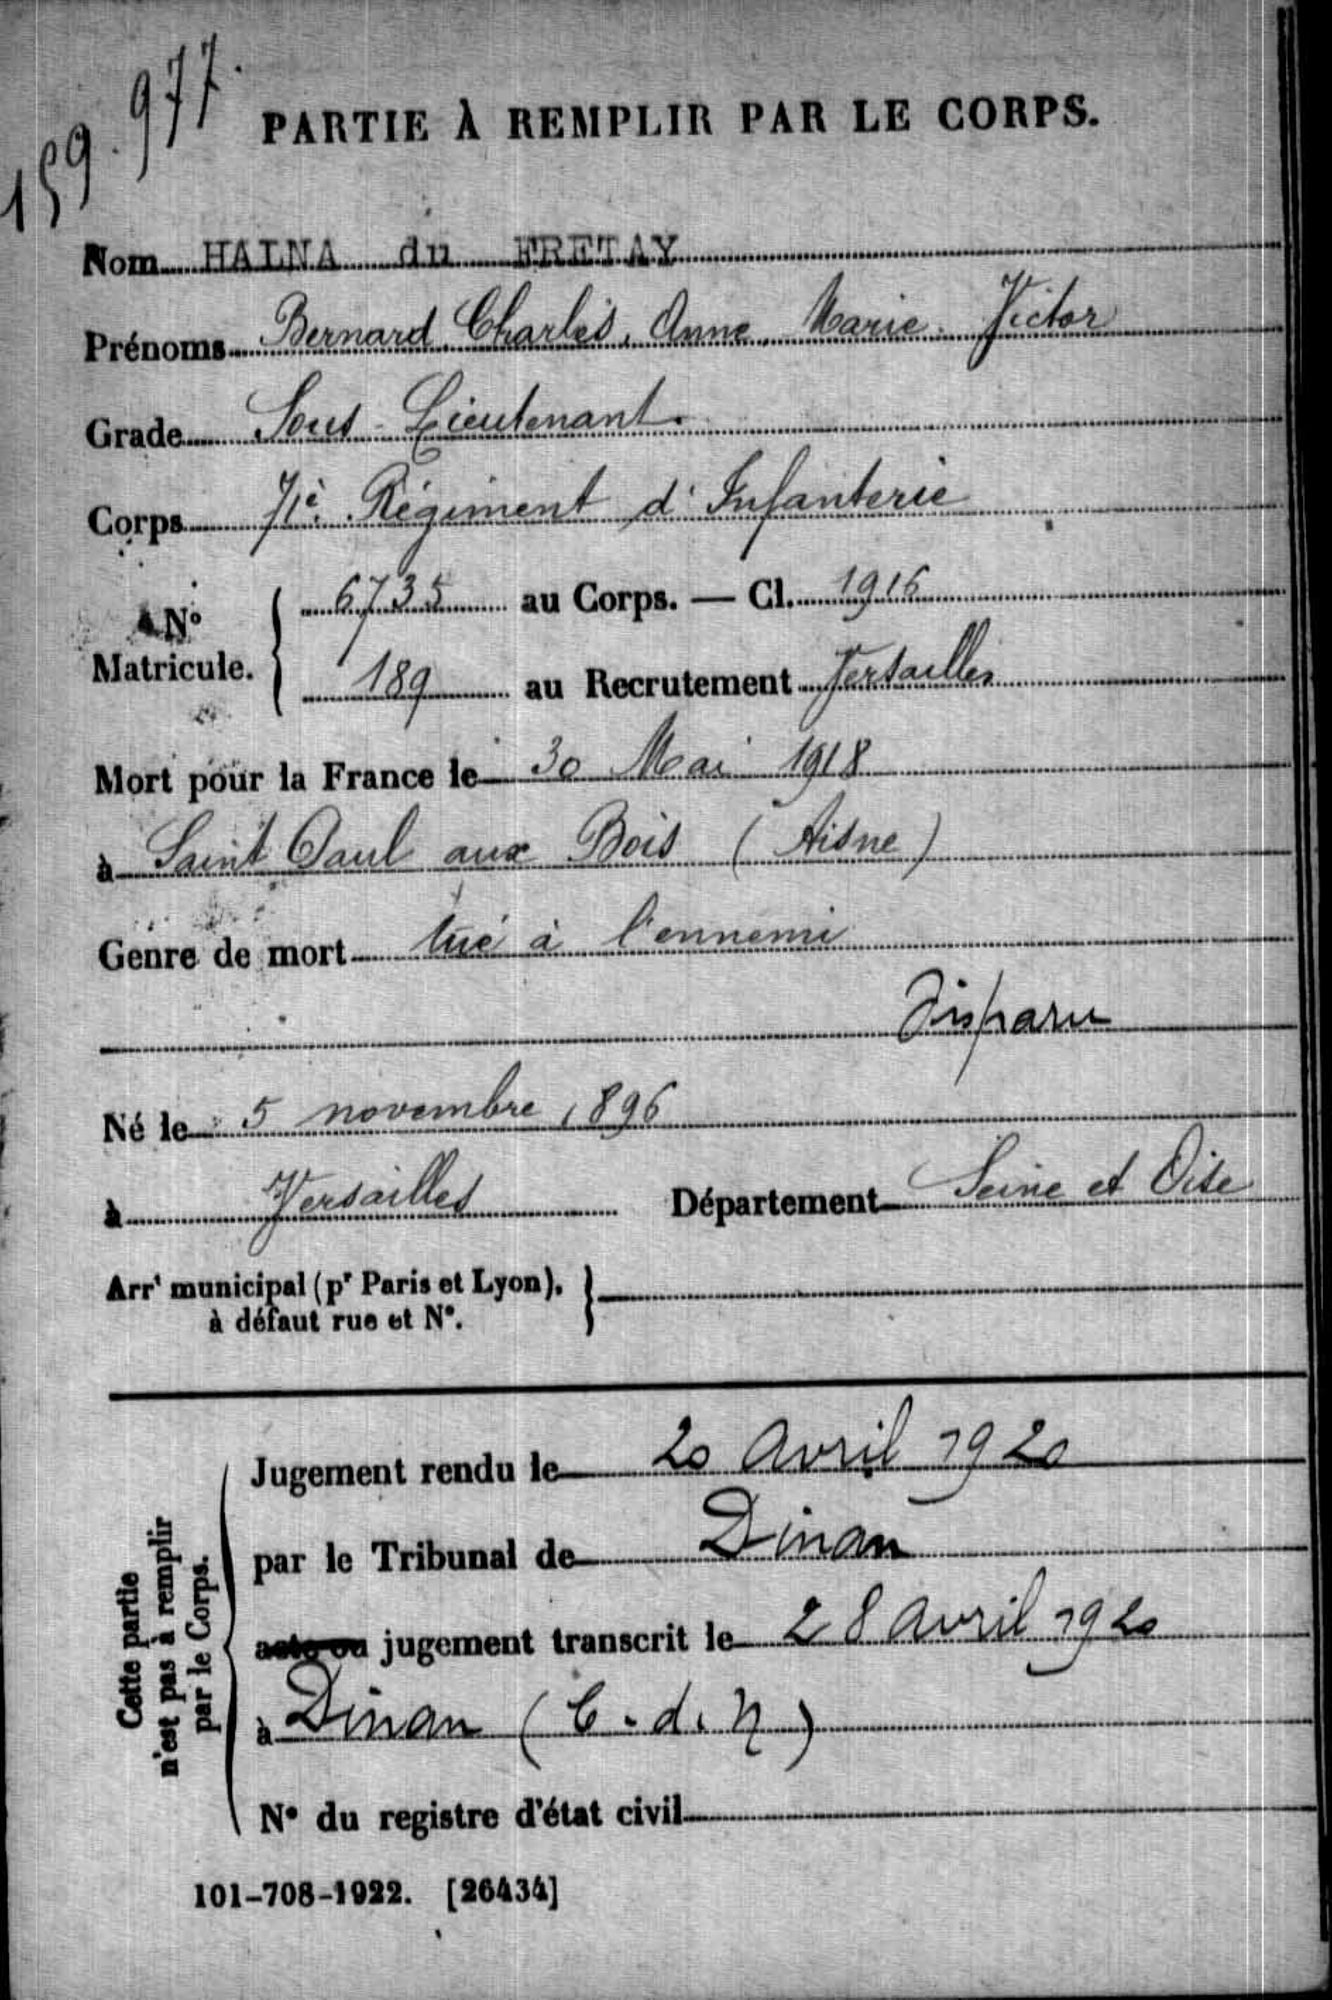 159.977.
PARTIE À REMPLIR PAR LE CORPS.
Nom HALNA du FRETAY
Prénoms Bernard, Charles, Anne, Marie. Victor
Grade Sous-Lieutenant.
Corps 71è. Régiment d'Infanterie
N° Matricule. { 6735 au Corps. — Cl. 1916
189 au Recrutement Versailles
Mort pour la France le 30 Mai 1918
à Saint Paul aux Bois (Aisne)
Genre de mort tué à l'ennemi
Disparu
Né le 5 novembre 1896
à Versailles Département Seine et Oise
Arrt municipal (pr Paris et Lyon), }
à défaut rue et N°.
Cette partie
n'est pas à remplir
par le Corps.
Jugement rendu le 20 Avril 1920
par le Tribunal de Dinan
acte ou jugement transcrit le 28 avril 1920
à Dinan (C.d.N)
N° du registre d'état civil
101-708-1922. [26434]